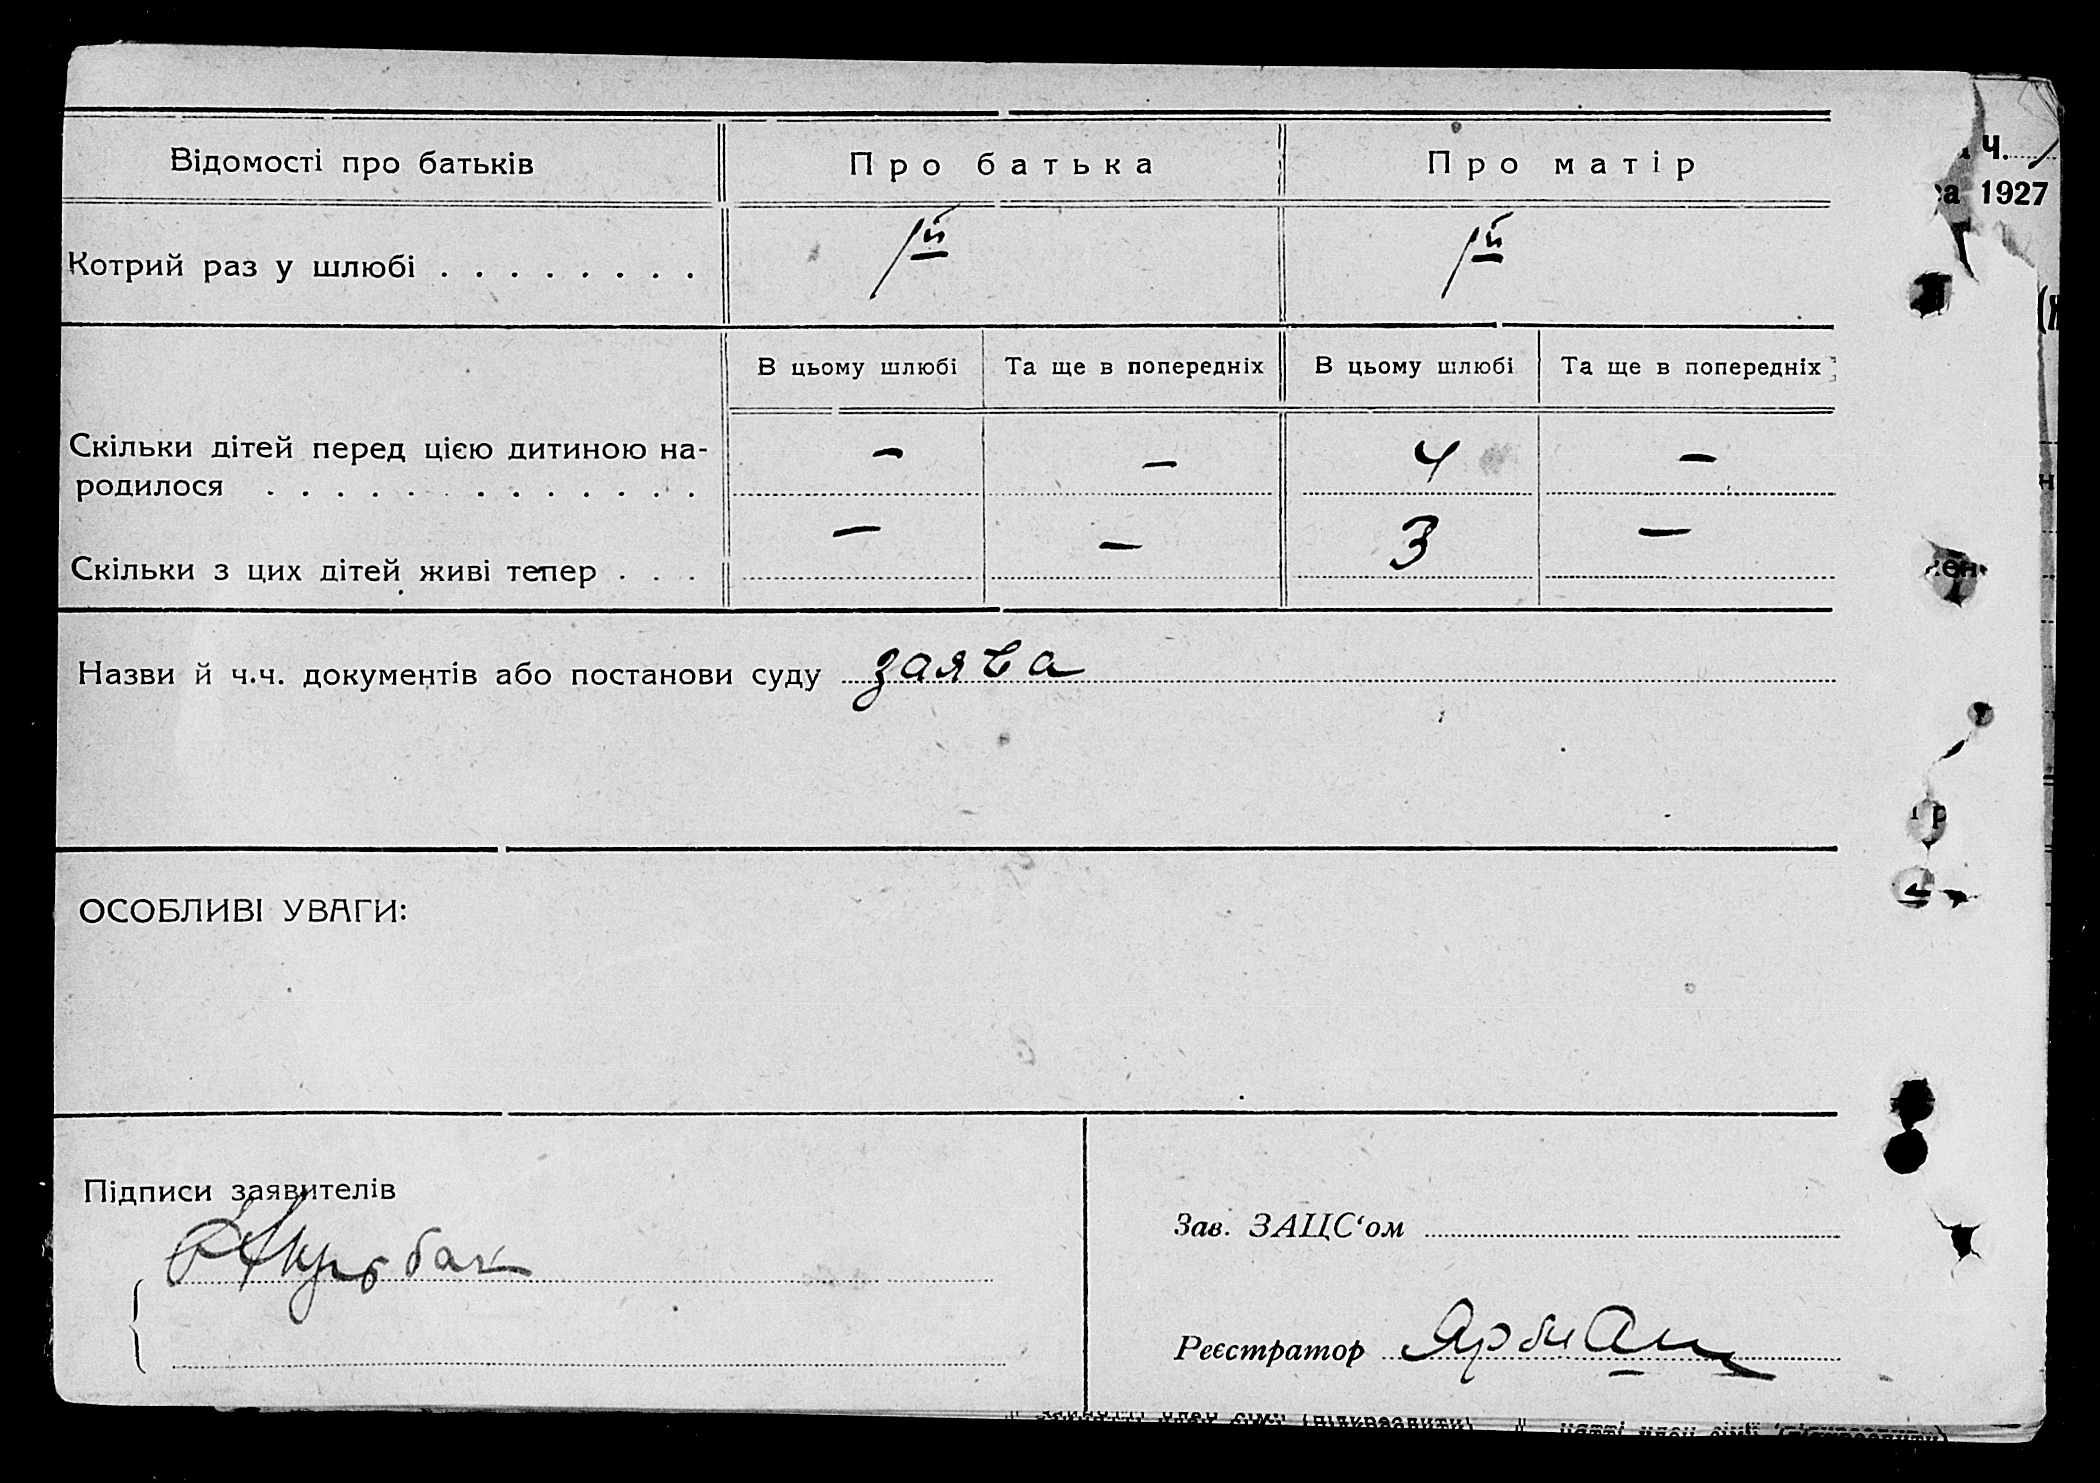 Відомості про батьків Про батька Про матір
Ч.
1927
Котрий раз у шлюбі . . . . . . . . 1й 1й
В цьому шлюбі Та ще в попередніх В цьому шлюбі Та ще в попередніх
Скільки дітей перед цією дитиною на- – – 4 –
родилося . . . . . . . . . . . . .
Скільки з цих дітей живі тепер . . . – – 3 –
Назви й ч.ч. документів або постанови суду заява
ОСОБЛИВІ УВАГИ:
Підписи заявителів
Зав. ЗАЦС‘ом
Реєстратор